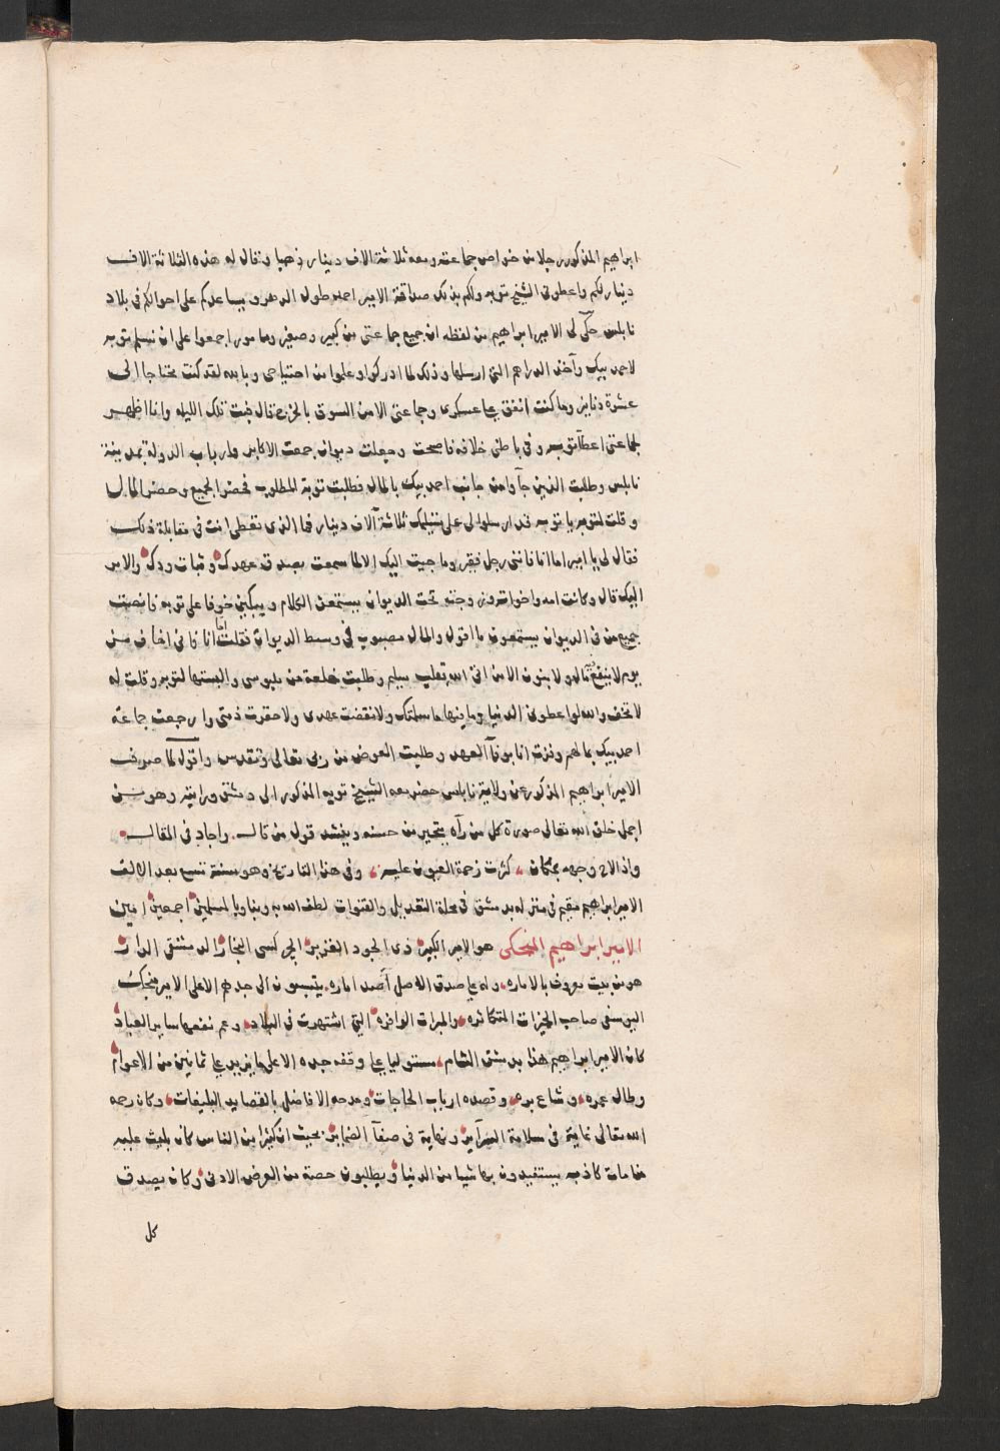 ابراهيم المذكور رجلا من خواص جماعته ومعه ثلاثة الاف دينار ذهبا وقال له هذه الثلاثة الاف
دينار لكم واعطونى الشيخ توبه ولكم بذلك صداقة الامير احمد طول الدهر ويساعدكم على احوالكم فى بلاد
نابلس حكى لى الامير ابراهيم من لفظه ان جميع جماعتى من كبير وصغير ومامور اجمعوا على ان نسلم توبه
لاحمد بيك وآخذ الدراهم التى ارسلها وذلك لما ادركوا وعلموا من احتياجى وبالله لقد كنت محتاجا الى
عشرة دنانير وما كنت انفق على عسكرى وجماعتى الا من السوق بالخرج قال فبت تلك الليله وانا اظهر
لجماعتى اعطآ توبه وفى باطنى خلافه فاصبحت وجعلت ديوان جمعت الاكابر وارباب الدولة بمدينة
نابلس وطلبت الذين جآوا من جانب احمد بيك بالمال فطلبت توبة المطلوب فحضر الجميع وحضر المال
وقلت لتوبه يا توبه قد ارسلوا لى على تسليمك ثلاثة آلاف دينار فما الذى تعطى انت فى مقابلة ذلك
فقال لى يا امير اما انا فاننى رجل فقير وما جيت اليك الا لما سمعت بصدق عهدك وثبات ودك والامر
اليك قال وكانت امه واخواته وزوجته تحت الديوان يستمعن الكلام ويبكين خوفا على توبه فانصت
جميع من فى الديوان يستمعون ما اقول والمال مصبوب فى وسط الديوان فقلت اما انا فانى اخاف من
يوم لا ينفع مال ولا بنون الا من اتى الله بقلب سليم وطلبت خلعة من ملبوسى والبستها لتوبه وقلت له
لا تخف والله لو اعطونى الدنيا وما فيها ما سلمتك ولا نقضت عهدى ولا حقرت ذمتى وارجعت جماعة
احمد بيك بمالهم وفزت انا بوفآ العهد وطلبت العوض من ربى تعالى وتقدس واقول لما صرف
الامير ابراهيم المذكور عن ولاية نابلس حضر معه الشيخ توبه المذكور الى دمشق ورايته وهو من
اجمل خلق الله تعالى صورة كل من رآه يتحير من حسنه وينشد قول من قال واجاد فى المقال
واذا لاح وجهه بمكان كثرت زحمة العيون عليه وفى هذا التاريخ وهو سنة تسع بعد الالف
الامير ابراهيم مقيم فى منزله بدمشق فى محلة التعديل والقنوات لطف الله به وبنا وبالمسلمين اجمعين امين
الامير ابراهيم المنجكى هو الامير الكبير ذى الجود الغزير الجركسى النجار الدمشقى الدار
هو من بيت معروف بالاماره وله على صدق الاصل اصدق اماره ينتسبون الى جدهم الاعلى الامير منجك
اليوسفى صاحب الخيرات المتكاثره والمبرات الوافره التى اشتهرت فى البلاد وعم نفعها ساير العباد
كان الامير ابراهيم هذا بدمشق الشام مستوليا على وقف جده الاعلى ما يزيد على ثمانين من الاعوام
وطال عمره وشاع بره وقصده ارباب الحاجات ومدحه الافاضل بالقصايد البليغات وكان رحمه
الله تعالى غاية فى سلامة السرآير ونهاية فى صفآ الضماير بحيث ان كثيرا من الناس كان يلبث عليه
منامات كاذبه يستفيدون بها شيا من الدنيا ويطلبون حصة من العرض الادنى وكان يصدق
كل